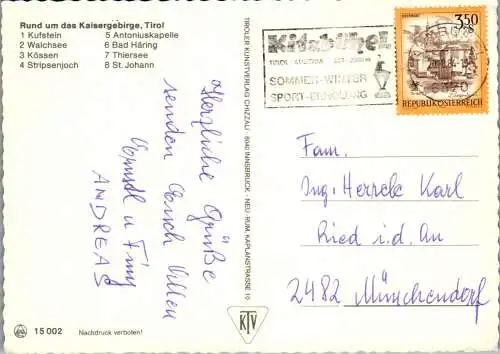 Rund um das Kaisergebirge, Tirol
1 Kufstein 5 Antoniuskapelle
2 Walchsee 6 Bad Häring
3 Kössen 7 Thiersee
4 Stripsenjoch 8 St. Johann
Herzliche Grüße
senden Euch Allen
Ernstl u Finy
ANDREAS
15 002 Nachdruck verboten!
TIROLER KUNSTVERLAG CHIZZALI · 6040 INNSBRUCK - NEU-RUM, KAPLANSTRASSE 10
KTV
Kitzbühel
TIROL AUSTRIA
SOMMER-WINTER
SPORT-ERHOLUNG
3.50
REPUBLIK ÖSTERREICH
Fam.
Ing. Herrele Karl
Ried i.d. Au
2482 Münchendorf